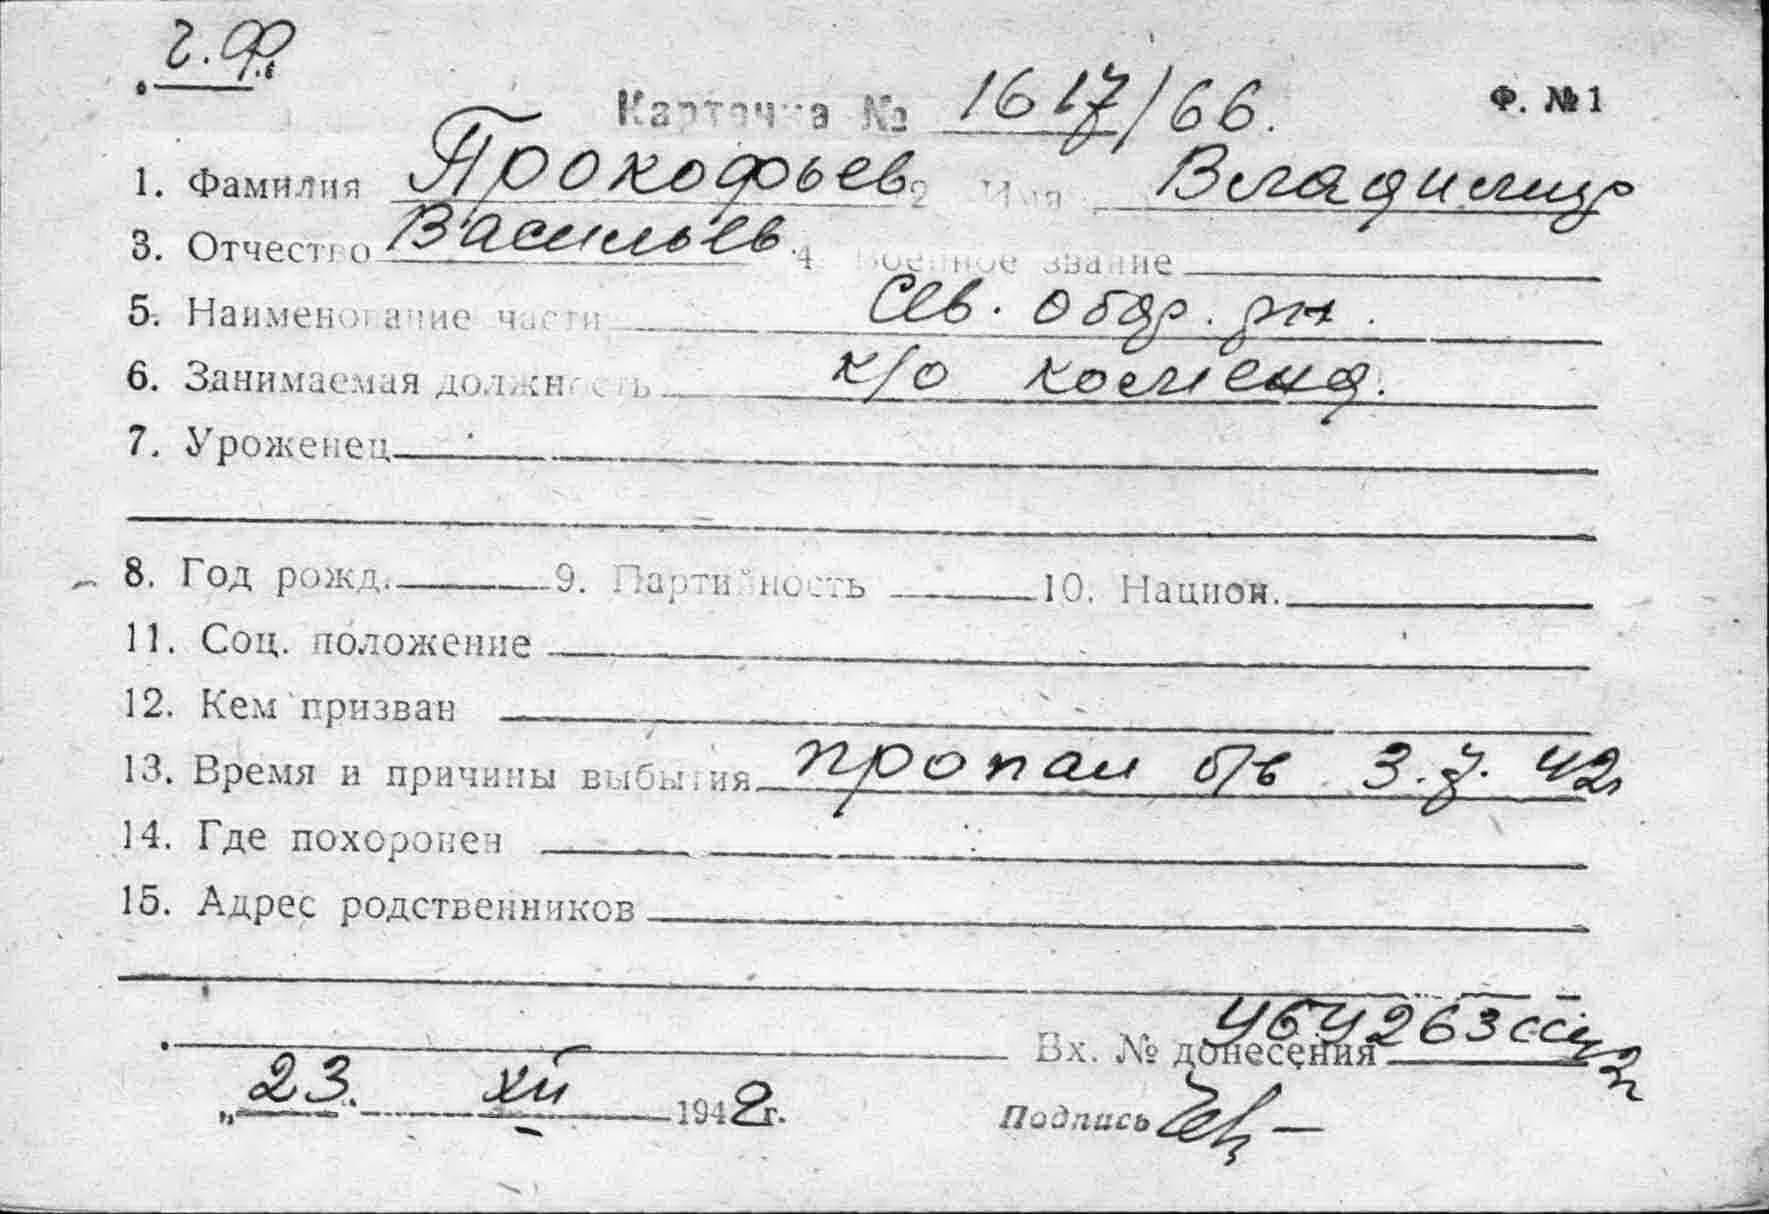 ч.Ф.
Карточка № 1617/66.
Ф. №1
1. Фамилия Прокофьев 2. Имя Владимир
3. Отчество Васильев. 4. Военное звание
5. Наименование части Сев. обор. рн.
6. Занимаемая должность к/о коменд.
7. Уроженец
8. Год рожд. 9. Партийность 10. Национ.
11. Соц. положение
12. Кем призван
13. Время и причины выбытия пропал б/в 3.7.42г
14. Где похоронен
15. Адрес родственников
Вх. № донесения
„23. XII 1942г.
Подпись